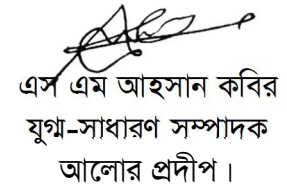 এস এম আহসান কবির
যুগ্ম-সাধারণ সম্পাদক
আলোর প্রদীপ।